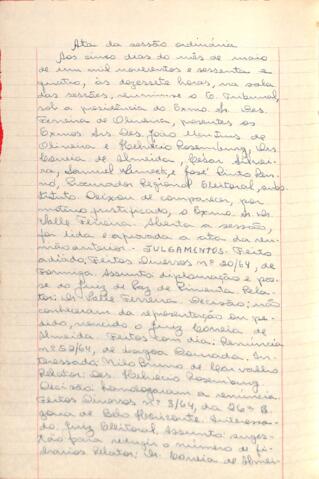 Ata da sessão ordinária
Aos cinco dias do mês de maio
de um mil novecentos e sessenta e
quatro, às dezessete horas, na sala
das sessões, reuniu-se o E. Tribunal,
sob a presidência do Exmo. Sr. Des.
Ferreira de Oliveira, presentes os
Exmos. Srs. Des. João Martins de
Oliveira e Helvécio Rosenburg, Drs.
Correia de Almeida, César Silvei-
ra, Samuel e José Pinto
, Procurador Regional Eleitoral, subs-
tituto. Deixou de comparecer, por
motivo justificado, o Exmo. Sr. Dr.
Valle Ferreira. Aberta a sessão,
foi lida e aprovada a ata da reu-
nião anterior. - JULGAMENTOS. - Feito
adiado; Feitos Diversos nº 20/64, de
Formiga. Assunto: diplomação e pos-
se do Juiz de Paz de Pimenta. Rela-
tor: Dr. Valle Ferreira. Decisão: não
conheceram da representação ou pe-
dido, vencido o Juiz Correia de
Almeida. Feitos com dia: Denúncia
nº 52/64, de Lagoa Dourada. In-
teressado: Nilo de Carvalho
Relator: Des. Helvécio Rosenburg.
Decisão: homologaram a renúncia.
Feitos Diversos nº 3/64, da 26ª
zona de Belo Horizonte. Interessa-
do: Juiz Eleitoral. Assunto: suges-
tão para reduzir o número de
Relator: Dr. Correia de Almei-